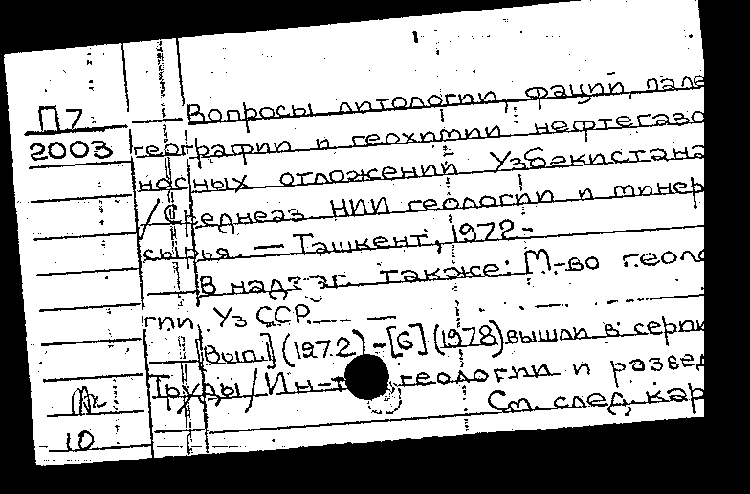 П7
2003
Вопросы литологии, фаций, пале
географии и геохимии нефтегазо
носных отложений Узбекистана
/Среднеаз. НИИ геологии и минер
сырья. — Ташкент, 1972-
В надзаг. также: М-во геоло
гии Уз ССР.
[Вып.] (1972)-[6] (1978) вышли в серии
Труды/Ин-т геологии и развед
См. след. кар
10